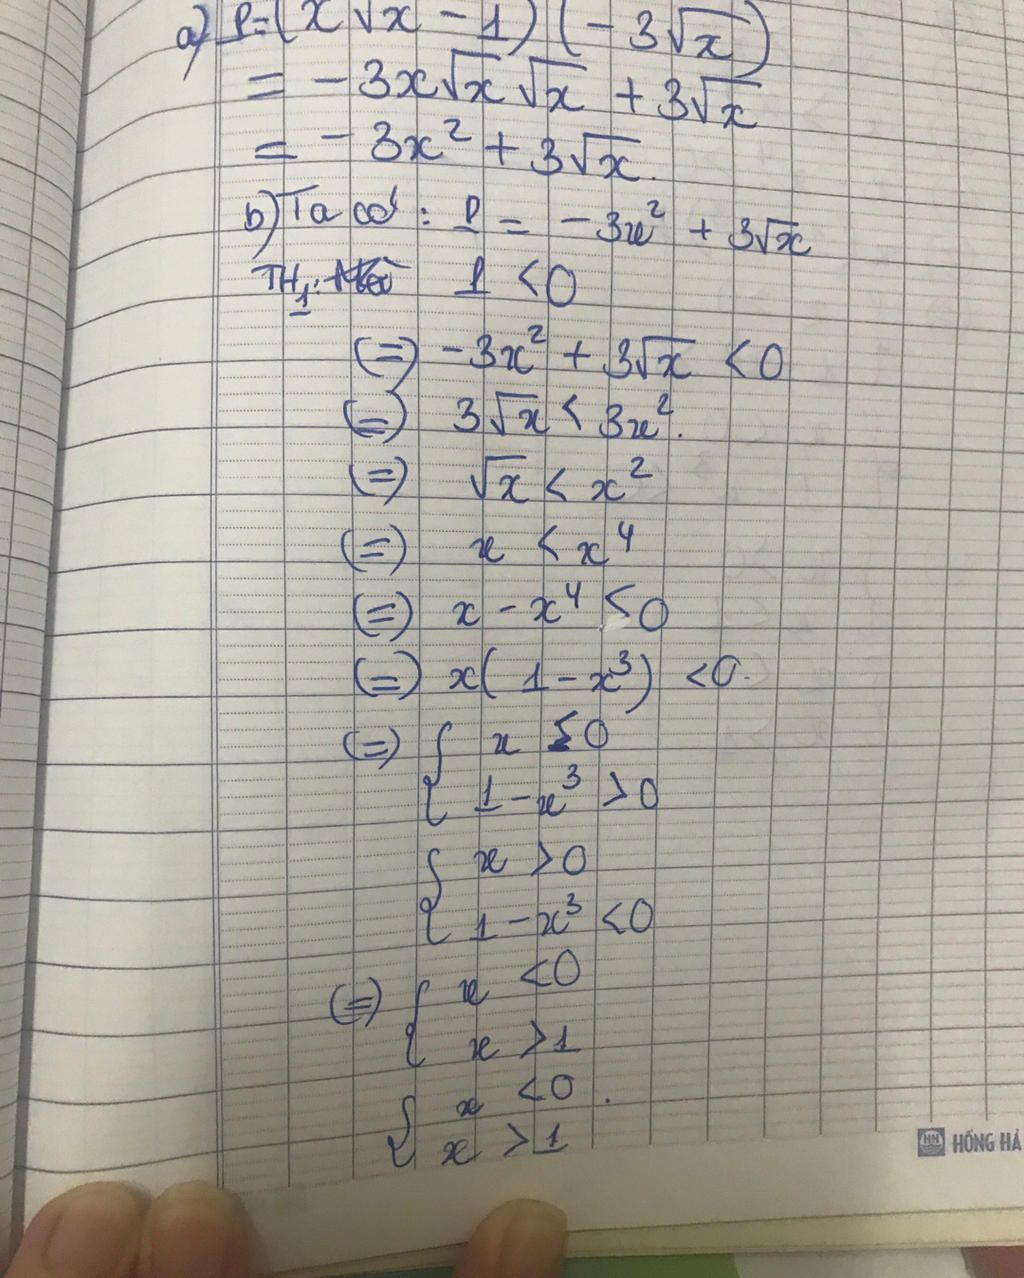 a) P = (x√x - 1)(-3√x)
= - 3x√x √x + 3√x
= - 3x² + 3√x.
b) Ta có : P = - 3x² + 3√x
TH1: P < 0
(=) - 3x² + 3√x < 0
(=) 3√x < 3x².
(=) √x < x²
(=) x < x⁴
(=) x - x⁴ < 0
(=) x( 1 - x³) < 0.
(=) { x < 0
1 - x³ > 0
{ x > 0
1 - x³ < 0
(=) { x < 0
x > 1
{ x < 0 .
x > 1
HỒNG HÀ